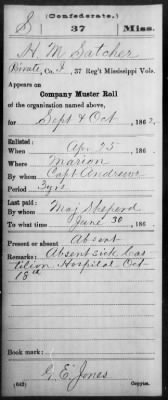 (Confederate.)
S 37 Miss.
H. M. Satcher
Private, Co. I, 37 Reg't Mississippi Vols.
Appears on
Company Muster Roll
of the organization named above,
for Sept & Oct, 1862.
Enlisted:
When Apr 25, 186
Where Marion
By whom Capt Andrews
Period 3 yrs
Last paid:
By whom Maj Sheperd
To what time June 30, 186
Present or absent Absent
Remarks: Absent sick Cas
tilion Hospital Oct
18th
Book mark:
G. E. Jones
(642) Copyist.